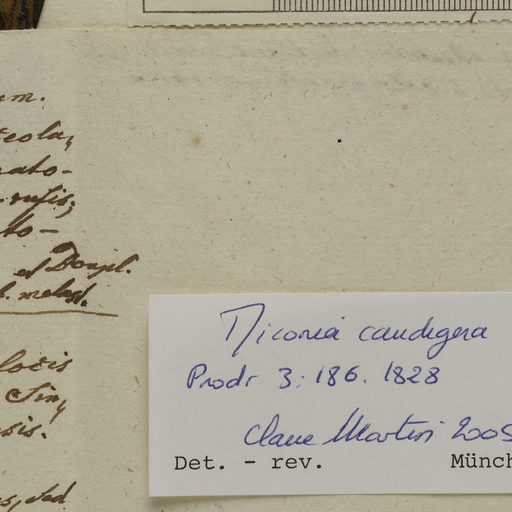 um.
teola,
nato-
rufis;
to-
et Bonpl.
b. melast.
locis
sis.
Miconia caudigera
Prodr 3: 186. 1828
Claue Martin 2005
Det. - rev. Münch